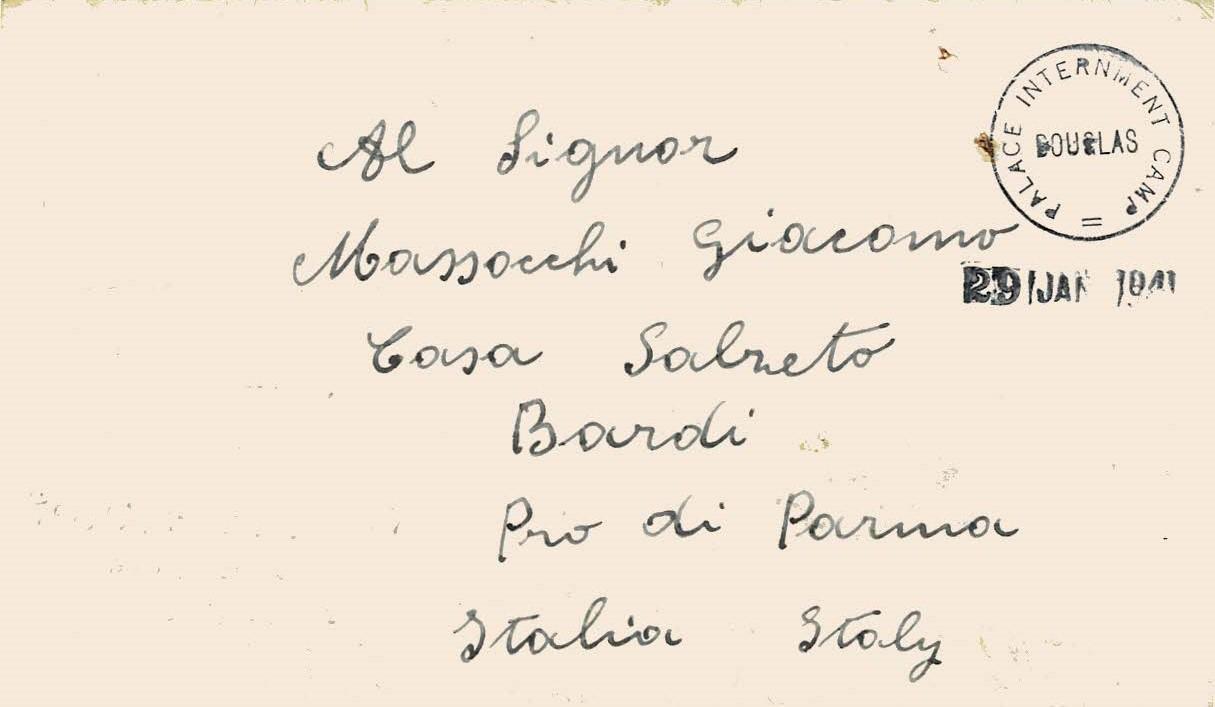 PALACE INTERNMENT CAMP =
DOUGLAS
29 JAN 1941
Al Signor
Massocchi Giacomo
Casa Salzeto
Bardi
Pro di Parma
Italia Italy